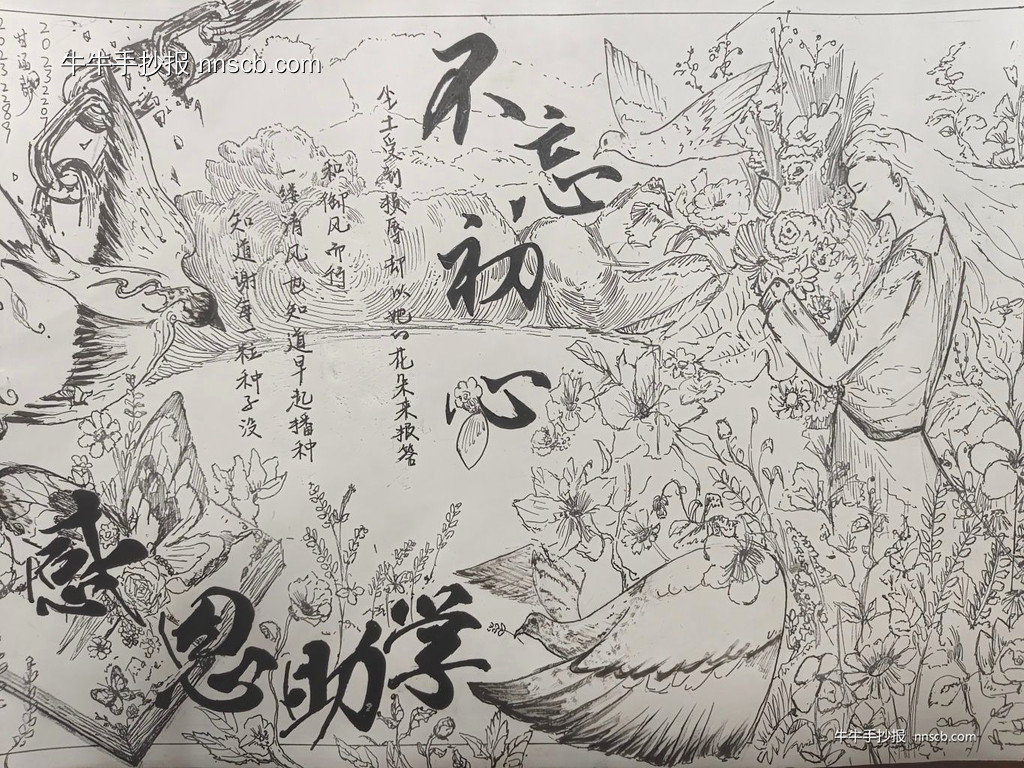 牛牛手抄报 nnscb.com
不忘初心
尘土受到损辱却以她的花朵来报答
和御风而行
一缕清风也知道早起播种
知道谢每一粒种子没
感恩助学
牛牛手抄报 nnscb.com